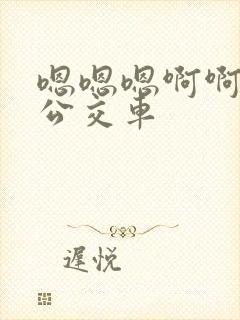 嗯嗯嗯啊啊
公交车
遲悦